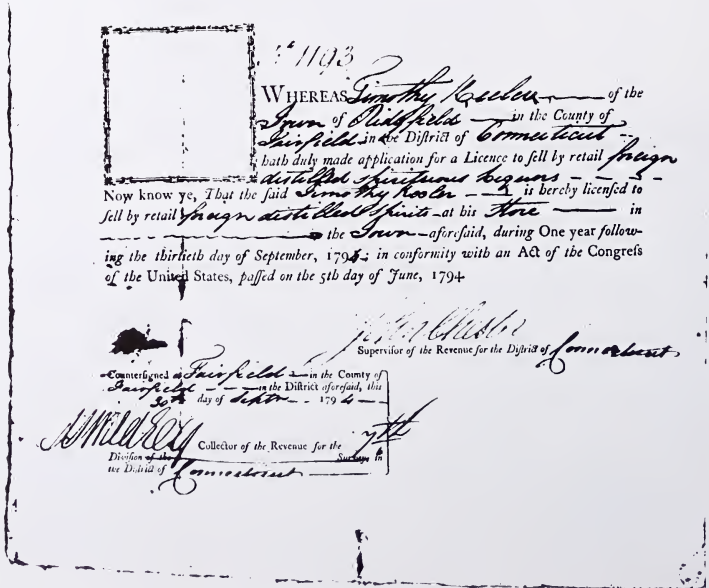 No 1193
WHEREAS Timothy Keeler of the
Town of Ridgfield in the County of
Fairfield in the District of Connecticut
hath duly made application for a Licence to sell by retail foreign
distilled spirituous Liquors
Now know ye, That the said Timothy Keeler is hereby licensed to
sell by retail foreign distilled spirits at his Store in
the Town aforesaid, during One year follow-
ing the thirtieth day of September, 1794; in conformity with an Act of the Congress
of the United States, passed on the 5th day of June, 1794
John Chester
Supervisor of the Revenue for the District of Connecticut
Countersigned at Fairfield in the County of
Fairfield in the District aforesaid, this
30th day of Septr 1794
Collector of the Revenue for the 7th
Division of the Survey in
the District of Connecticut